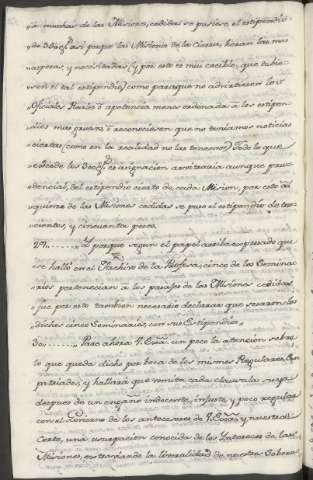 à muchas de las Misiones, cedidas se pusiese, el estipendio
de 300 p.s así porque las Misiones de la Sierra, heran las mas
asperas, y necesitadas (y por esto es mui creible, que tubie-
sen el tal estipendio) como paraque no advirtiesen los
Oficiales Reales ò apetencia menos ordenada à los estipen-
dios mas quantiosos ò reconociesen que no teniamos noticias
ciertas (como en la realidad no las tenemos) Todo lo que
excede los 300 p.s es asignacion arvitraria aunque pru-
dencial, del estipendio cierto de cada Mision, por esto à
quince de las Misiones cedidas se puso el estipendio de tres-
cientos, y cincuenta pesos
29. Y porque segun el papel arriba expresado que
se hallò en el Archivo de la Profesa, cinco de los Semina-
rios pertenecian à los parajes de las Misiones cedidas
fue por esto tambien necesario declarar que cesaron los
dichos cinco Seminarios, con sus Estipendios
30. Pare ahora V. Exa. un poco la atencion sobre
lo que queda dicho por boca de los mismos Regulares Ex-
patriados, y hallará que remita cada clausula
despues de un engaño indecente, injusto, y poco regular
con el de los antecesores de V. Exa. y nuestro
cierto, una usurpacion conocida de los Intereses de las
Misiones, en trastorno de la liberalidad de nuestro Sobera-